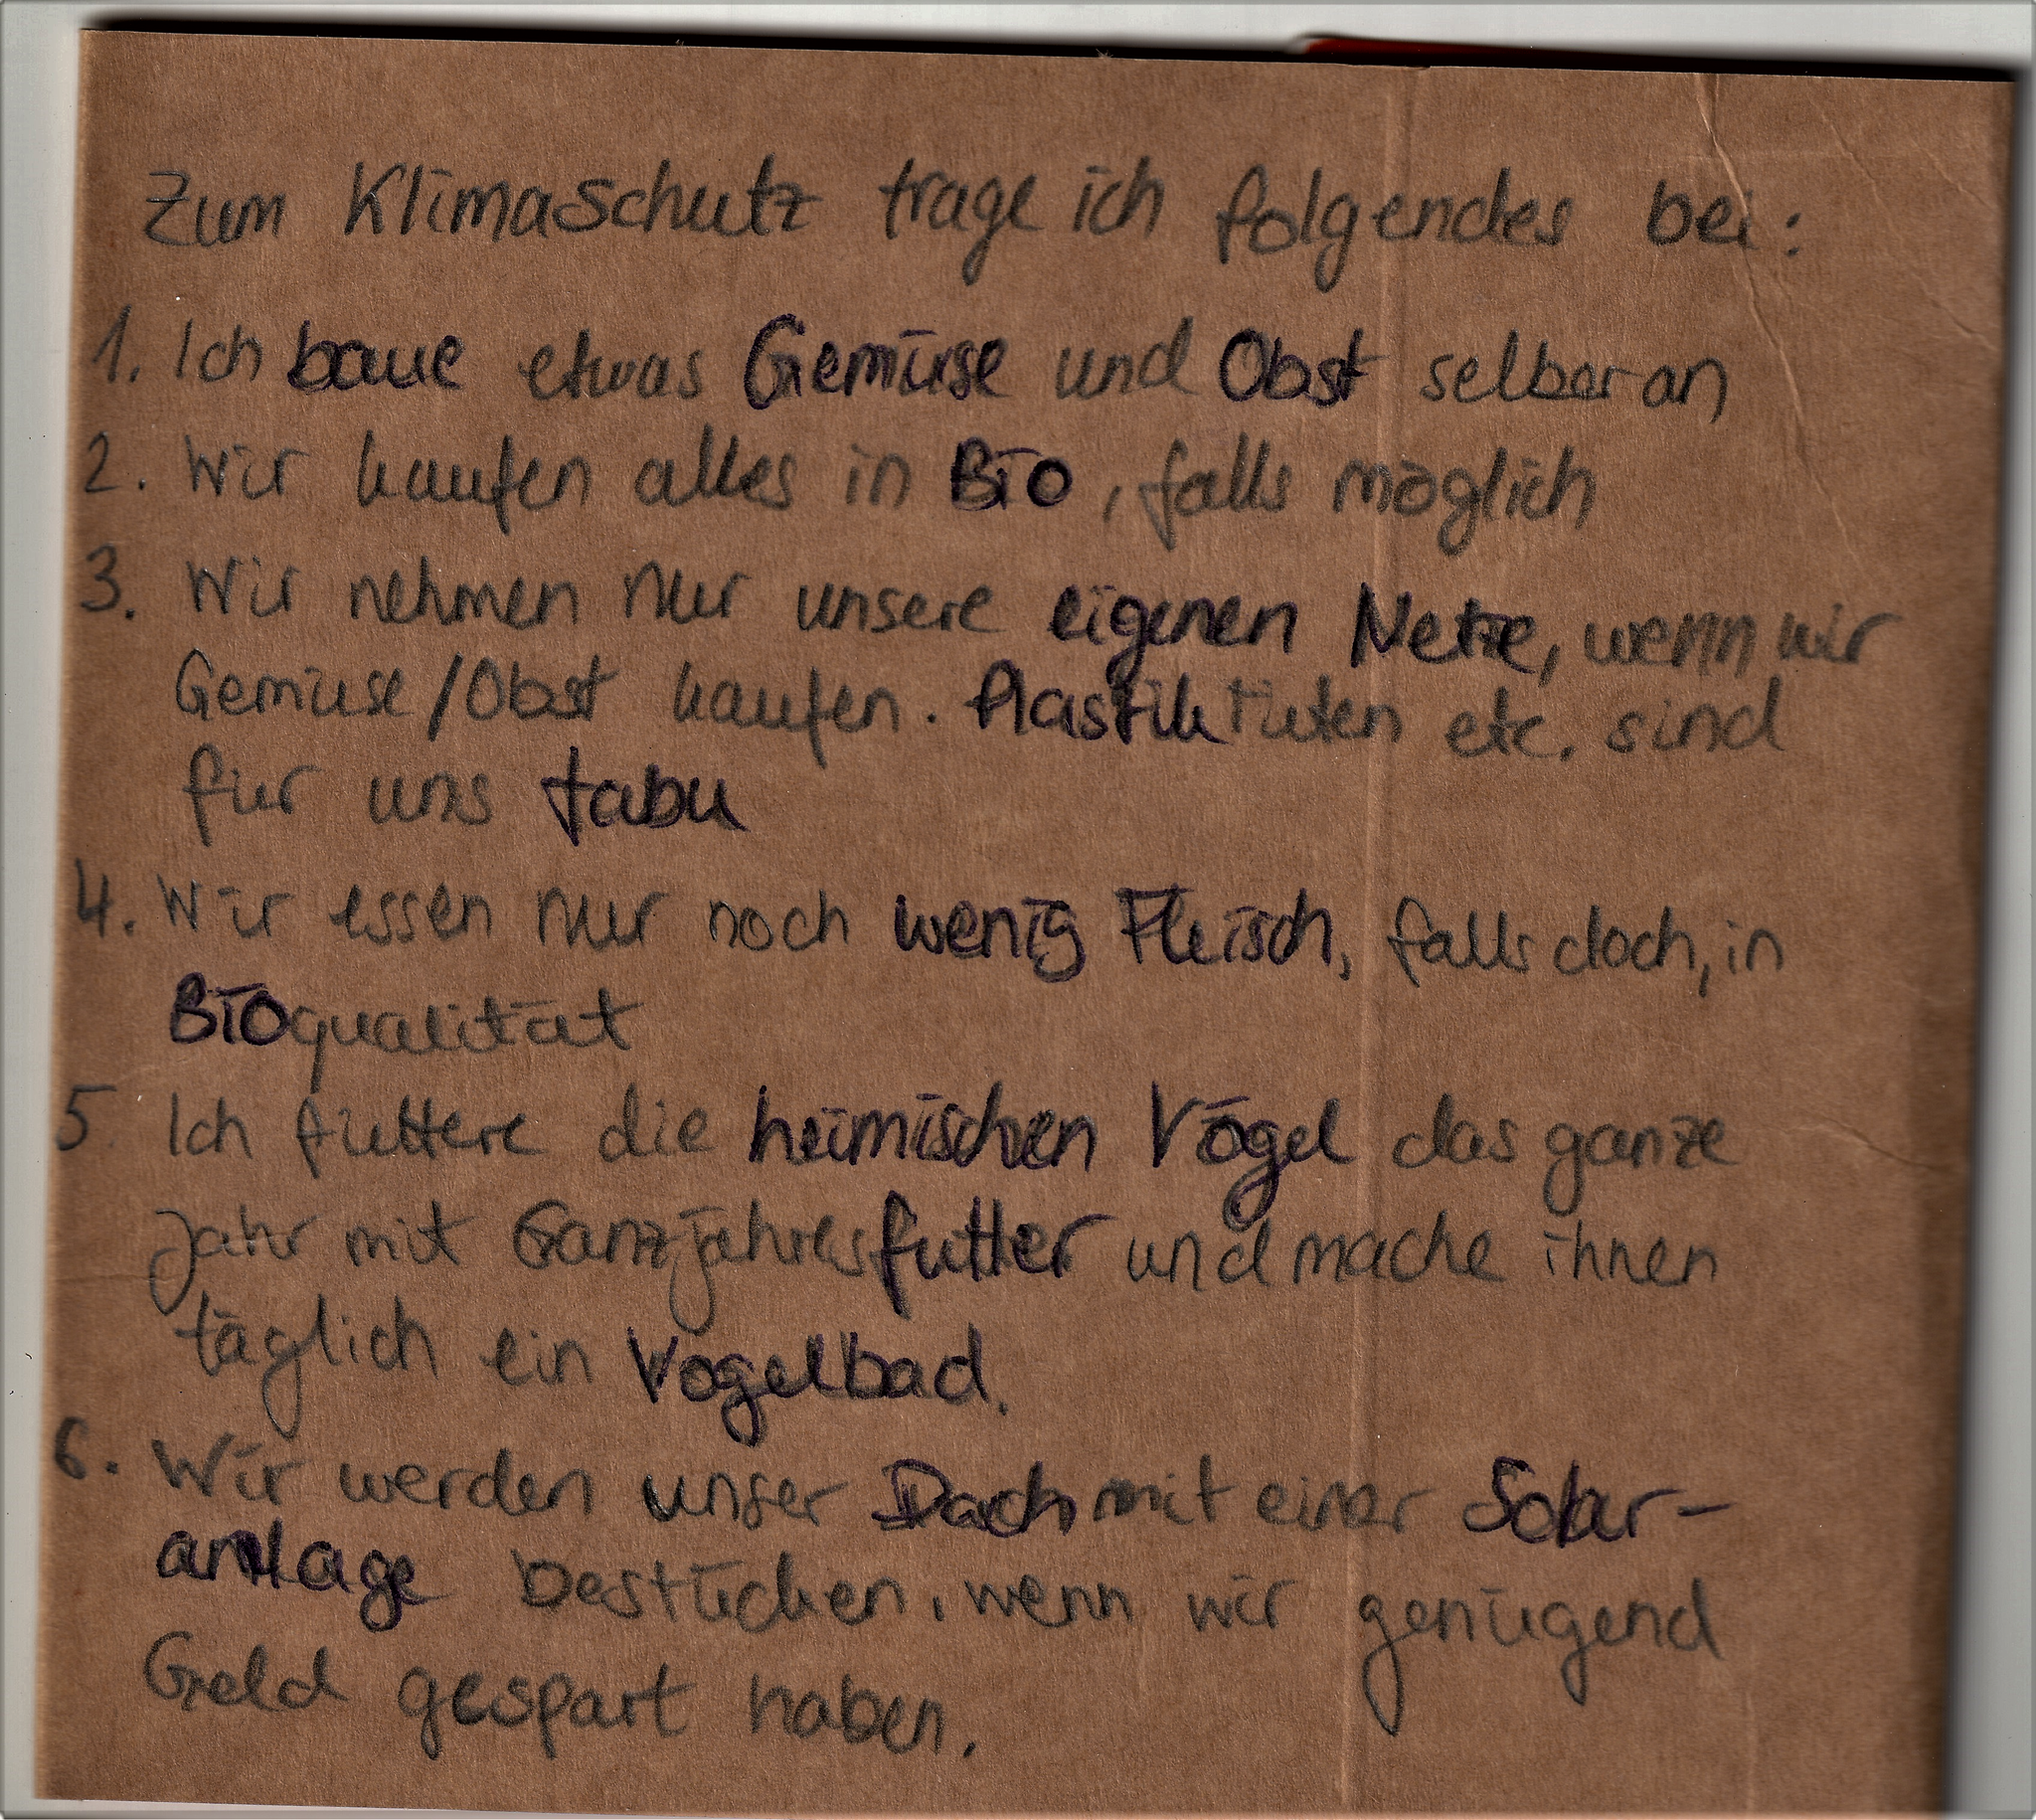 Zum Klimaschutz trage ich folgendes bei:
1. Ich baue etwas Gemüse und Obst selber an
2. Wir kaufen alles in Bio, falls möglich
3. Wir nehmen nur unsere eigenen Netze, wenn wir
Gemüse/Obst kaufen. Plastiktüten etc. sind
für uns tabu
4. Wir essen nur noch wenig Fleisch, falls doch, in
Bioqualität
5. Ich füttere die heimischen Vögel das ganze
Jahr mit Ganzjahresfutter und mache ihnen
täglich ein Vogelbad.
6. Wir werden unser Dach mit einer Solar-
anlage bestücken, wenn wir genügend
Geld gespart haben.